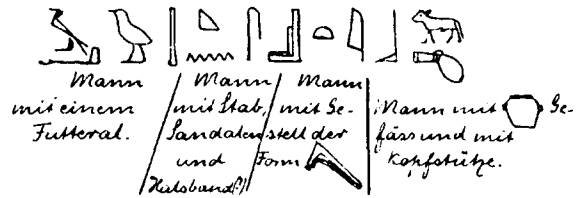 Mann
mit einem
Futteral.
Mann
mit Stab,
Sandalen
und
Halsband(?)
Mann
mit Ge-
stell der
Form
Mann mit Ge-
fäss und mit
Kopfstütze.